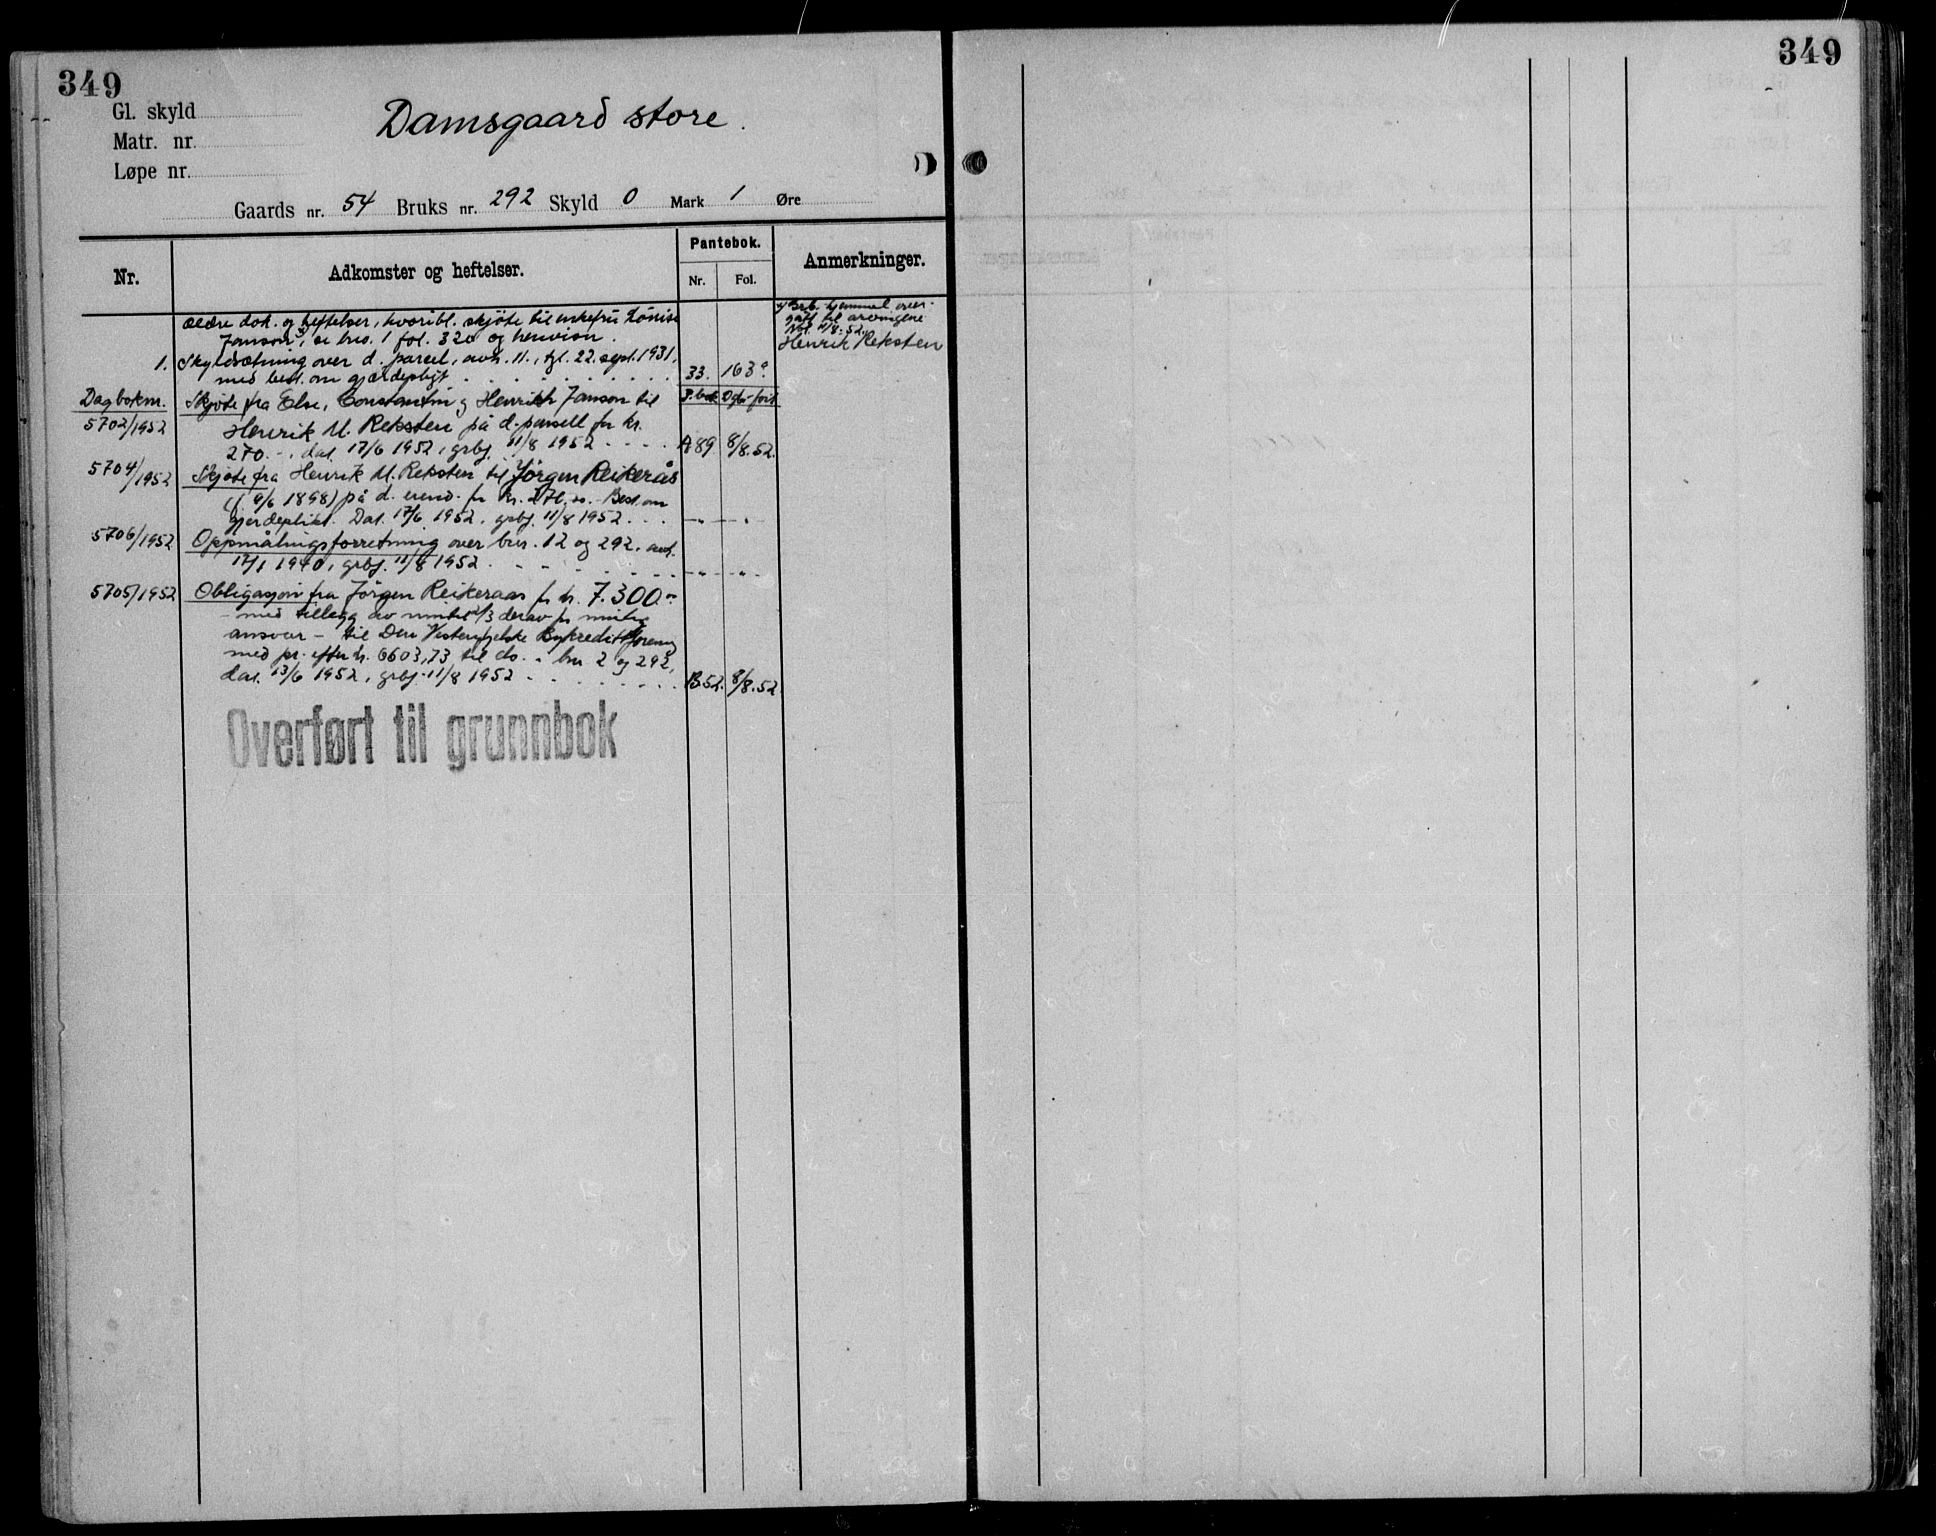 349
349
Gl. skyld
Matr. nr.
Løpe nr.
Damsgaard store.
Gaards nr. 54 Bruks nr. 292 Skyld 0 Mark 1 Øre
Nr.
Adkomster og heftelser.
Pantebok.
Nr.
Fol.
Anmerkninger.
ældre dok. og heftelser, hvoribl. skjøte til enkefru Louise
Janson, se bno. 1 fol. 320 og henvisn.
hjemmel over-
ført til arvingene
11/8-52.
Henrik Reksten
1. Skyldsætning over d. parcel, avh. 11., tgl. 22. sept. 1931,
med best. om gjærdepligt 33. 163a.
Dagboknr. Skjøte fra Else, Constantin og Henrich Janson til P.bok Dgb.ført
5702/1952 Henrik M. Reksten på d. parsell for kr.
270.-, dat. 17/6 1952, grbf. 11/8 1952 A89 8/8.52.
5704/1952 Skjøte fra Henrik M. Reksten til Jörgen Reikerås
(f. 9/6 1898) på d. eiend. for kr. 270.oo. Best. om
gjerdeplikt. Dat. 17/6 1952, grbf. 11/8 1952 -"- -"-
5706/1952 Oppmålingsforretning over bnr. 12 og 292, avh.
12/1 1940, grbf. 11/8 1952 -"- -"-
5705/1952 Obligasjon fra Jörgen Reikeraas for kr. 7.300.-
- med tillegg av inntil 2/3 derav for mulig
ansvar - til Den Vestenfjelske Bykredittforening
med pr. efter kr. 6603,73 til do. i bnr 2 og 292,
dat. 13/6 1952, grbf. 11/8 1952 B.52. 8/8.52
Overført til grunnbok